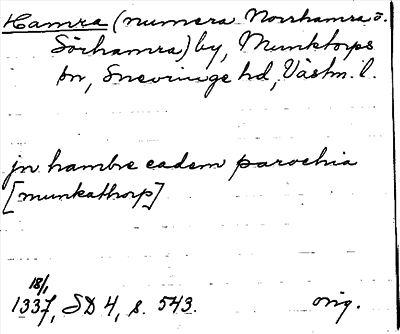 Hamra (numera Norrhamra o.
Sörhamra) by, Munktorps
sn, Snevringe hd, Västm. l.
jn hambre eadem parochia
[munkathorp]
18/1
1337, SD 4, s. 543. orig.